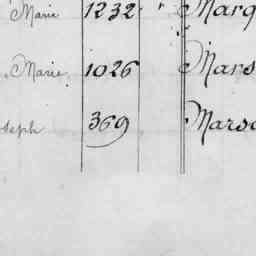 Marie 1232 " Marq
Marie 1026 Mars
seph 369 Marso